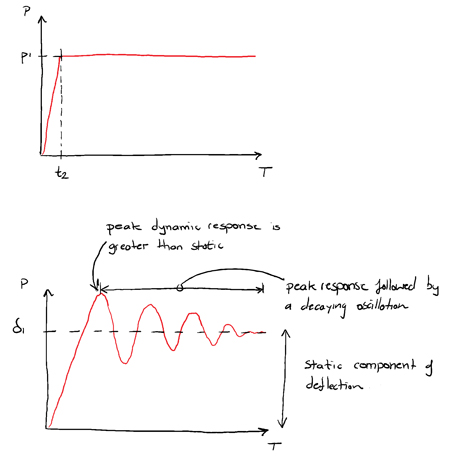 P
P'
t2
T
peak dynamic response is
greater than static
P
peak response followed by
a decaying oscillation
δ1
static component of
deflection
T